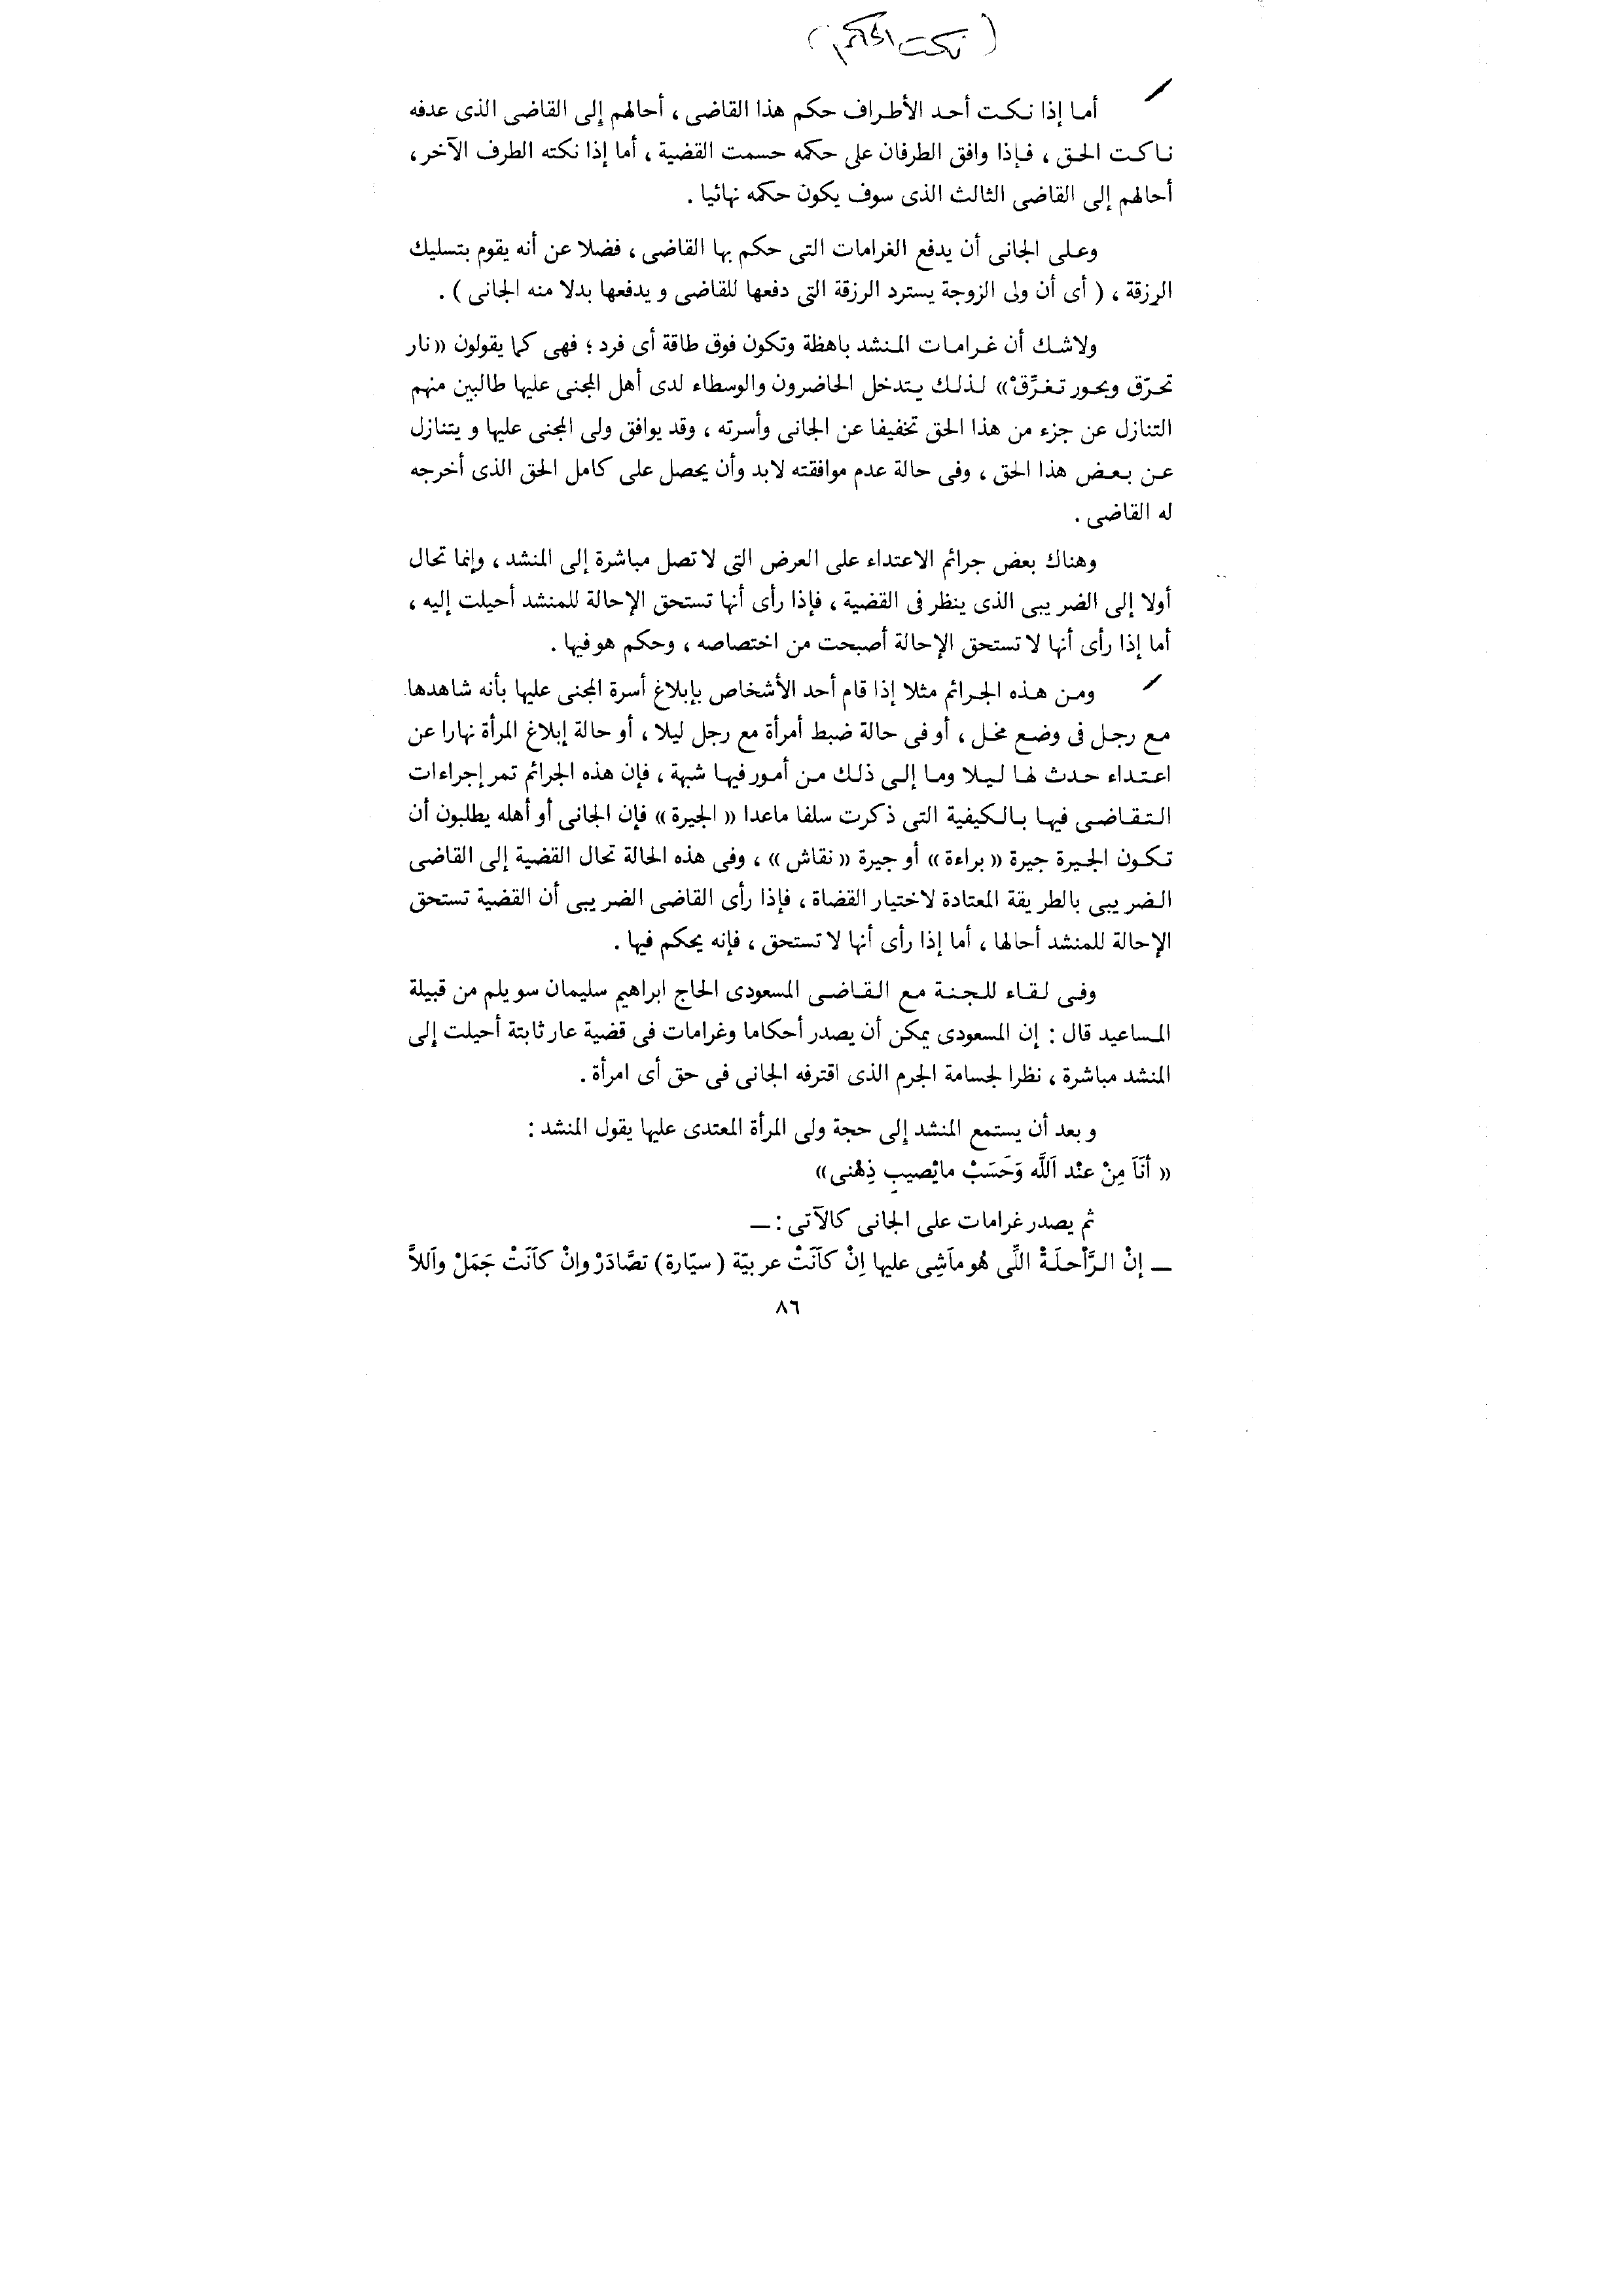 ( نكت الحكم )
أما إذا نكت أحد الأطراف حكم هذا القاضى ، أحالهم إلى القاضى الذى عدفه
ناكت الحق ، فإذا وافق الطرفان على حكمه حسمت القضية ، أما إذا نكته الطرف الآخر ،
أحالهم إلى القاضى الثالث الذى سوف يكون حكمه نهائيا .
وعلى الجانى أن يدفع الغرامات التى حكم بها القاضى ، فضلا عن أنه يقوم بتسليك
الرزقة ، ( أى أن ولى الزوجة يسترد الرزقة التى دفعها للقاضى ويدفعها بدلا منه الجانى ) .
ولاشك أن غرامات المنشد باهظة وتكون فوق طاقة أى فرد ؛ فهى كما يقولون «نار
تحرّق وبحور تغرِّقْ» لذلك يتدخل الحاضرون والوسطاء لدى أهل المجنى عليها طالبين منهم
التنازل عن جزء من هذا الحق تخفيفا عن الجانى وأسرته ، وقد يوافق ولى المجنى عليها ويتنازل
عن بعض هذا الحق ، وفى حالة عدم موافقته لابد وأن يحصل على كامل الحق الذى أخرجه
له القاضى .
وهناك بعض جرائم الاعتداء على العرض التى لا تصل مباشرة إلى المنشد ، وإنما تحال
أولا إلى الضريبى الذى ينظر فى القضية ، فإذا رأى أنها تستحق الإحالة للمنشد أحيلت إليه ،
أما إذا رأى أنها لا تستحق الإحالة أصبحت من اختصاصه ، وحكم هو فيها .
ومن هذه الجرائم مثلا إذا قام أحد الأشخاص بإبلاغ أسرة المجنى عليها بأنه شاهدها
مع رجل فى وضع مخل ، أو فى حالة ضبط أمرأة مع رجل ليلا ، أو حالة إبلاغ المرأة نهارا عن
اعتداء حدث لها ليلا وما إلى ذلك من أمور فيها شبهة ، فإن هذه الجرائم تمر إجراءات
التقاضى فيها بالكيفية التى ذكرت سلفا ماعدا «الجيرة» فإن الجانى أو أهله يطلبون أن
تكون الجيرة جيرة «براءة» أو جيرة «نقاش» ، وفى هذه الحالة تحال القضية إلى القاضى
الضريبى بالطريقة المعتادة لاختيار القضاة ، فإذا رأى القاضى الضريبى أن القضية تستحق
الإحالة للمنشد أحالها ، أما إذا رأى أنها لا تستحق ، فإنه يحكم فيها .
وفى لقاء للجنة مع القاضى المسعودى الحاج ابراهيم سليمان سويلم من قبيلة
المساعيد قال : إن المسعودى يمكن أن يصدر أحكاما وغرامات فى قضية عار ثابتة أحيلت إلى
المنشد مباشرة ، نظرا لجسامة الجرم الذى اقترفه الجانى فى حق أى امرأة .
وبعد أن يستمع المنشد إلى حجة ولى المرأة المعتدى عليها يقول المنشد :
« أنَاَ مِنْ عنْد اَللَّه وَحَسَبْ مايْصيبِ ذِهْنى»
ثم يصدر غرامات على الجانى كالآتى : ــ
ــ إنْ الرَّاْحلَةْ اللِّى هُو ماَشِى عليها اِنْ كاَنَتْ عربيّة ( سيّارة ) تصَّادَرْ واِنْ كاَنَتْ جَمَلْ واَللاَّ
٨٦